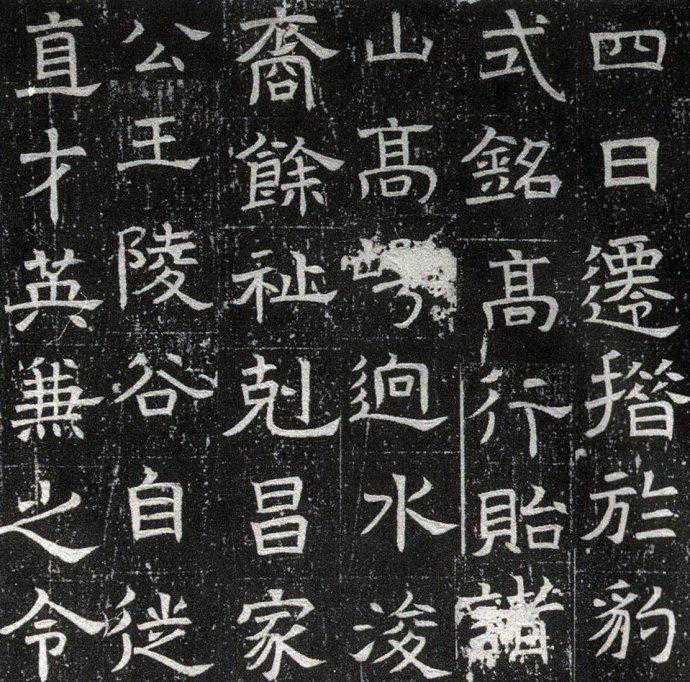 四日遷於豹
式銘髙行貽
山髙迥水浚
裔餘祉剋昌家
公王陵谷自從
直才英兼之令